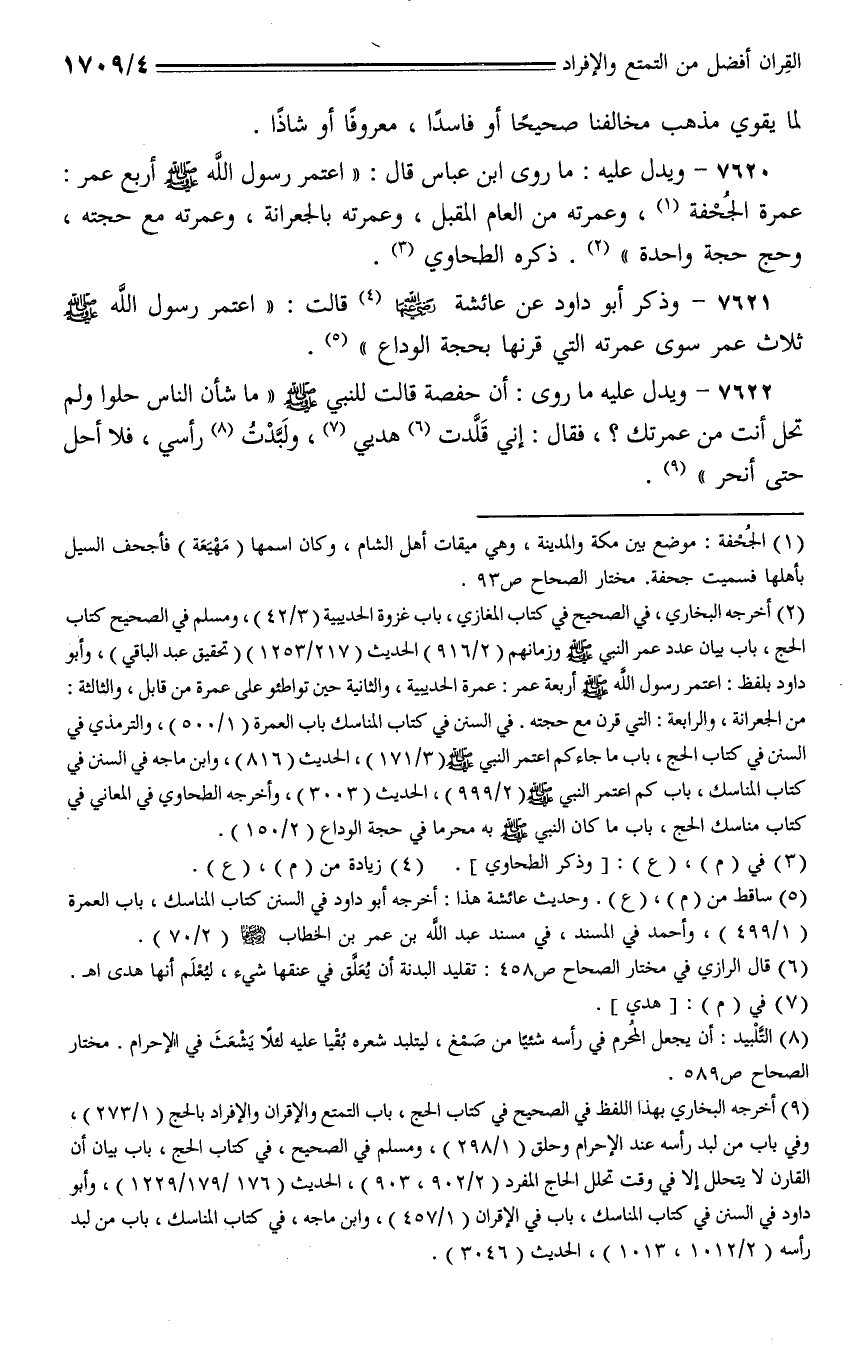 القِران أفضل من التمتع والإفراد ١٧٠٩/٤
لما يقوي مذهب مخالفنا صحيحًا أو فاسدًا ، معروفًا أو شاذًا .
٧٦٢٠ – ويدل عليه : ما روى ابن عباس قال : « اعتمر رسول اللَّه ﷺ أربع عمر :
عمرة الجُحْفة (١) ، وعمرته من العام المقبل ، وعمرته بالجعرانة ، وعمرته مع حجته ،
وحج حجة واحدة » (٢) . ذكره الطحاوي (٣) .
٧٦٢١ – وذكر أبو داود عن عائشة رضي الله عنها (٤) قالت : « اعتمر رسول اللَّه ﷺ
ثلاث عمر سوى عمرته التي قرنها بحجة الوداع » (٥) .
٧٦٢٢ – ويدل عليه ما روى : أن حفصة قالت للنبي ﷺ « ما شأن الناس حلوا ولم
تحل أنت من عمرتك ؟ ، فقال : إني قَلَّدت (٦) هديي (٧) ، ولَبَّدْتُ (٨) رأسي ، فلا أحل
حتى أنحر » (٩) .
(١) الجُحْفة : موضع بين مكة والمدينة ، وهي ميقات أهل الشام ، وكان اسمها ( مَهْيَعَة ) فأجحف السيل
بأهلها فسميت جحفة. مختار الصحاح ص٩٣ .
(٢) أخرجه البخاري ، في الصحيح في كتاب المغازي ، باب غزوة الحديبية ( ٤٢/٣ ) ، ومسلم في الصحيح كتاب
الحج ، باب بيان عدد عمر النبي ﷺ وزمانهم ( ٩١٦/٢ ) الحديث ( ١٢٥٣/٢١٧ ) ( تحقيق عبد الباقي ) ، وأبو
داود بلفظ : اعتمر رسول اللَّه ﷺ أربعة عمر : عمرة الحديبية ، والثانية حين تواطئو على عمرة من قابل ، والثالثة :
من الجعرانة ، والرابعة : التي قرن مع حجته . في السنن في كتاب المناسك باب العمرة ( ٥٠٠/١ ) ، والترمذي في
السنن في كتاب الحج ، باب ما جاء كم اعتمر النبي ﷺ ( ١٧١/٣ ) ، الحديث ( ٨١٦ ) ، وابن ماجه في السنن في
كتاب المناسك ، باب كم اعتمر النبي ﷺ ( ٩٩٩/٢ ) ، الحديث ( ٣٠٠٣ ) ، وأخرجه الطحاوي في المعاني في
كتاب مناسك الحج ، باب ما كان النبي ﷺ به محرما في حجة الوداع ( ١٥٠/٢ ) .
(٣) في ( م ) ، ( ع ) : [ وذكر الطحاوي ] . (٤) زيادة من ( م ) ، ( ع ) .
(٥) ساقط من ( م ) ، ( ع ) . وحديث عائشة هذا : أخرجه أبو داود في السنن كتاب المناسك ، باب العمرة
( ٤٩٩/١ ) ، وأحمد في المسند ، في مسند عبد اللَّه بن عمر بن الخطاب ( ٧٠/٢ ) .
(٦) قال الرازي في مختار الصحاح ص٤٥٨ : تقليد البدنة أن يُعَلَّق في عنقها شيء ، ليُعْلَم أنها هدى اهـ .
(٧) في ( م ) : [ هدي ] .
(٨) التَّلْبيد : أن يجعل المُحْرم في رأسه شيئًا من صَمْغ ، ليتلبد شعره بُقْيا عليه لئلَّا يَشْعَثَ في الإحرام . مختار
الصحاح ص٥٨٩ .
(٩) أخرجه البخاري بهذا اللفظ في الصحيح في كتاب الحج ، باب التمتع والإقران والإفراد بالحج ( ٢٧٣/١ ) ،
وفي باب من لبد رأسه عند الإحرام وحلق ( ٢٩٨/١ ) ، ومسلم في الصحيح ، في كتاب الحج ، باب بيان أن
القارن لا يتحلل إلا في وقت تحلل الحاج المفرد ( ٩٠٢/٢ ، ٩٠٣ ) ، الحديث ( ١٧٦ /١٢٢٩/١٧٩ ) ، وأبو
داود في السنن في كتاب المناسك ، باب في الإقران ( ٤٥٧/١ ) ، وابن ماجه ، في كتاب المناسك ، باب من لبد
رأسه ( ١٠١٢/٢ ، ١٠١٣ ) ، الحديث ( ٣٠٤٦ ) .